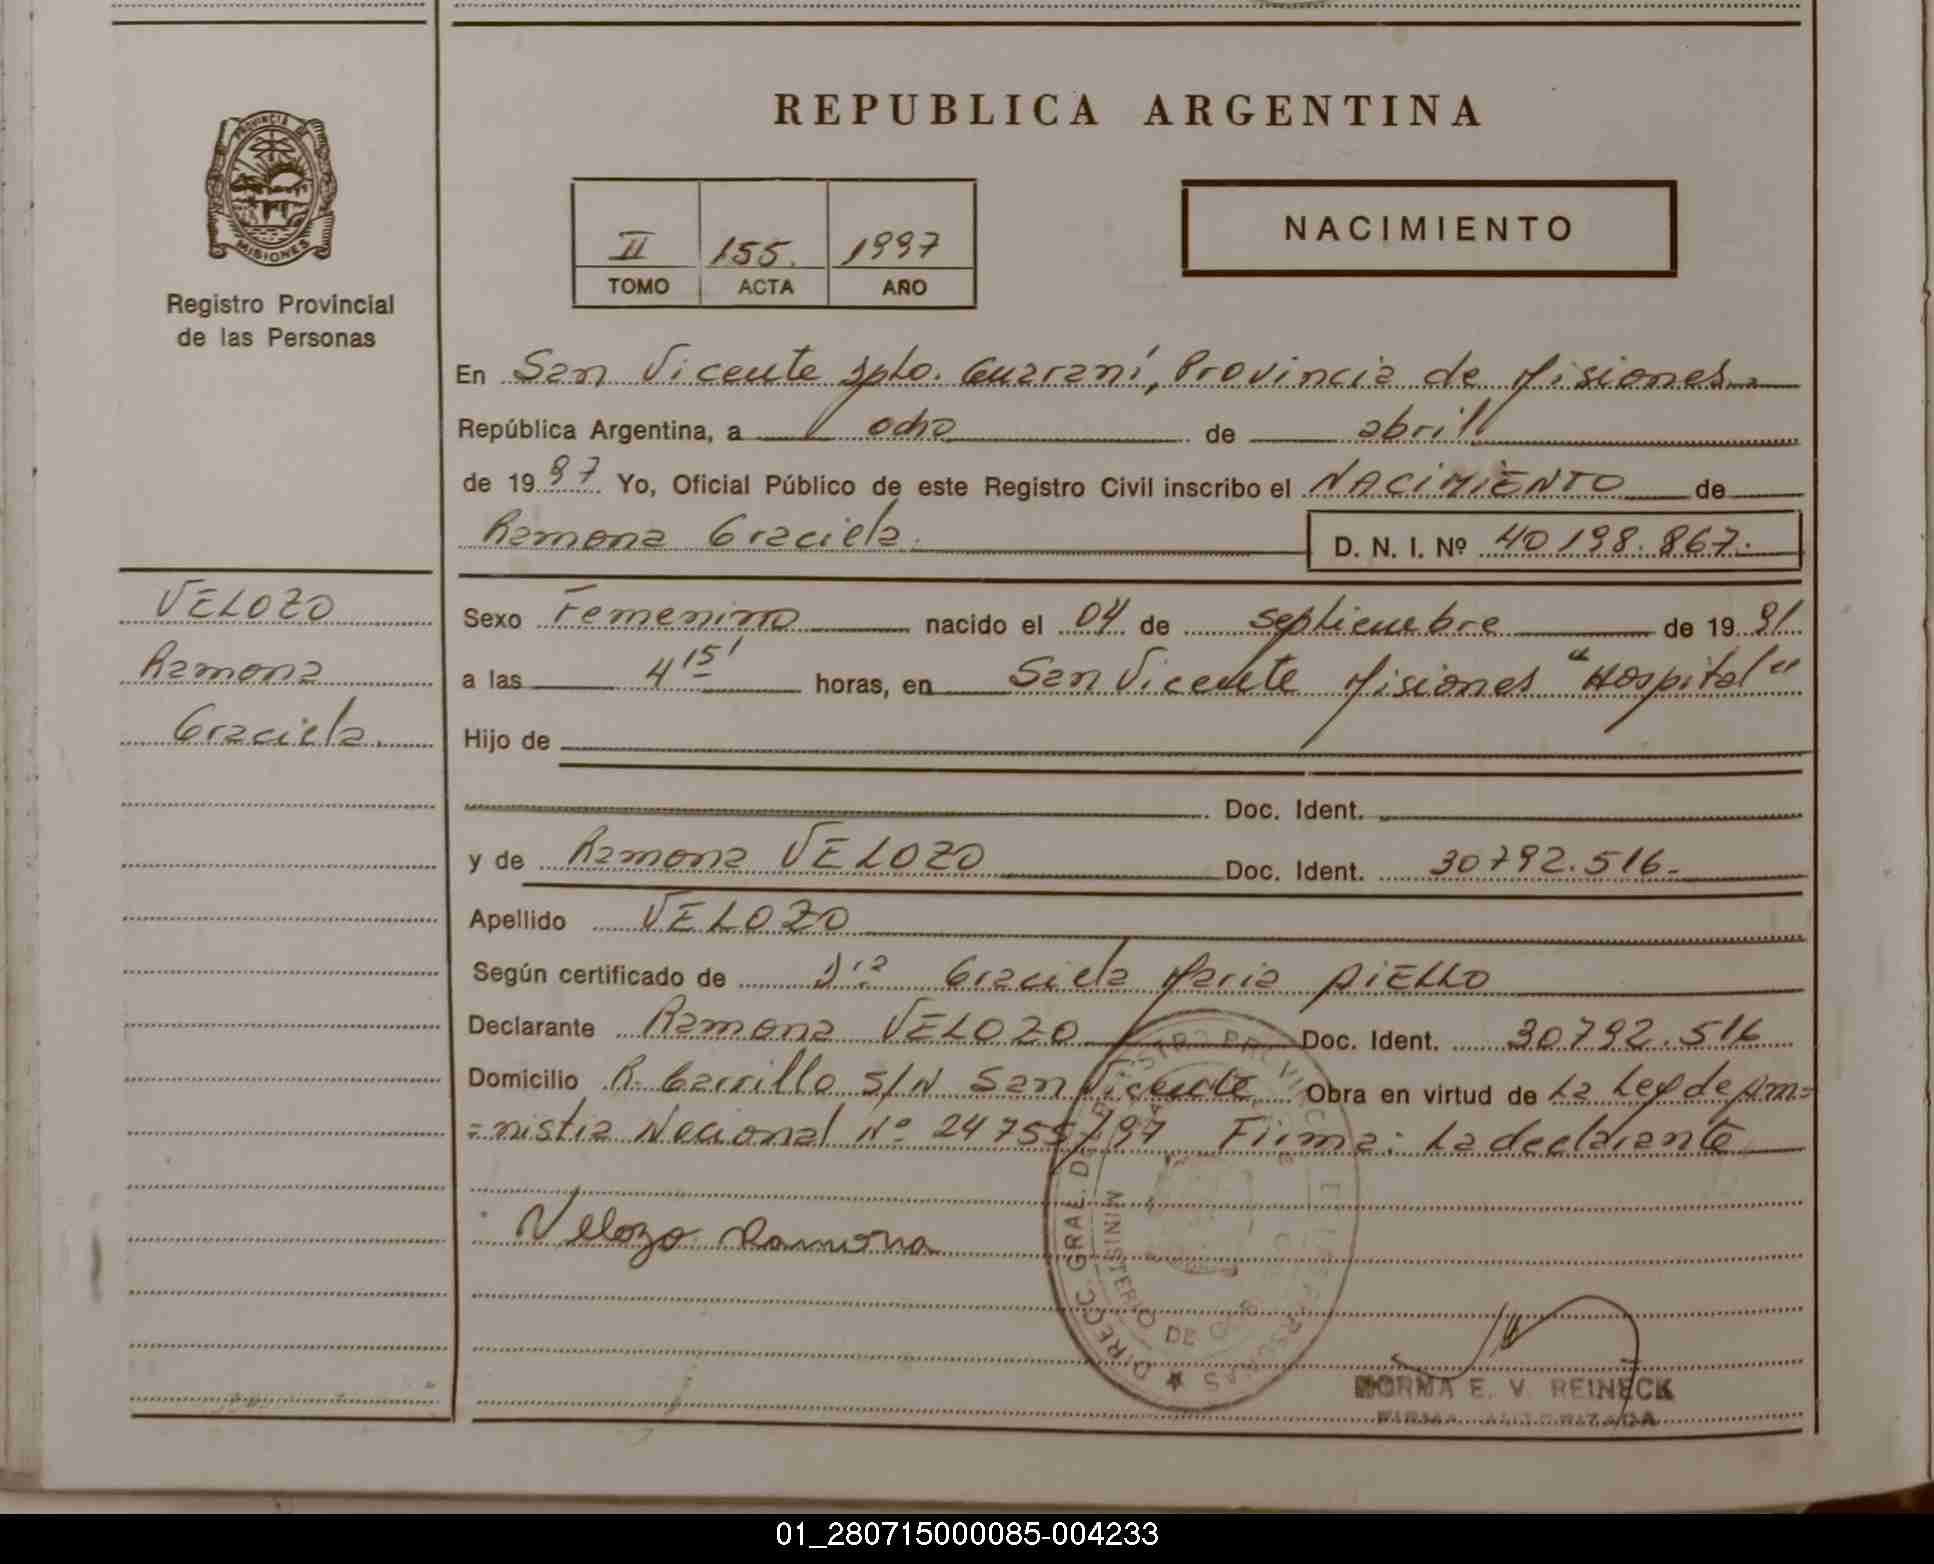 REPUBLICA ARGENTINA
PROVINCIA DE
MISIONES
Registro Provincial
de las Personas
II 155. 1997
TOMO ACTA AÑO
NACIMIENTO
En San Vicente Dpto. Guaraní, Provincia de Misiones.
República Argentina, a ocho de abril
de 1997 Yo, Oficial Público de este Registro Civil inscribo el NACIMIENTO de
Ramona Graciela. D. N. I. Nº 40198.867.
VELOZO
Ramona
Graciela.
Sexo Femenino nacido el 04 de septiembre de 1991
a las 4 15' horas, en San Vicente Misiones "Hospital"
Hijo de
Doc. Ident.
y de Ramona VELOZO Doc. Ident. 30792.516.
Apellido VELOZO
Según certificado de Dra Graciela Maria AIELLO
Declarante Ramona VELOZO Doc. Ident. 30792.516
Domicilio R. Carrillo S/N San Vicente Obra en virtud de La Ley de Am=
=nistia Nacional Nº 24755/97 Firma: La declarante
Velozo Ramona
DIRECC. GRAL. DEL REGISTRO PROVINCIAL DE LAS PERSONAS
MINISTERIO DE GOB
NORMA E. V. REINECK
FIRMA AUTORIZADA
01_280715000085-004233